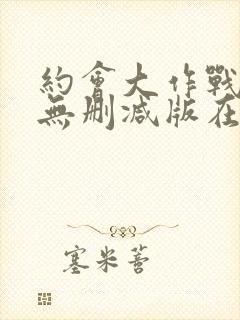 約會大作戰
無刪減版在
塞米蒈